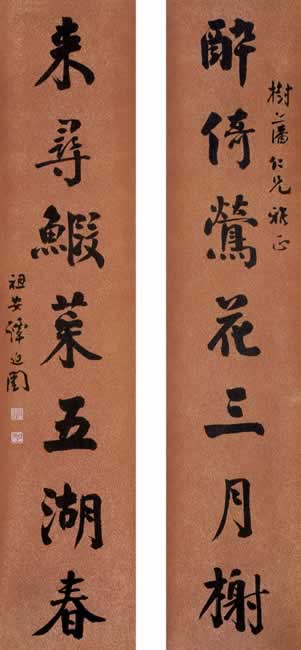 樹藩仁兄雅正
醉倚鶯花三月榭
來尋鰕菜五湖春
祖安譚延闓